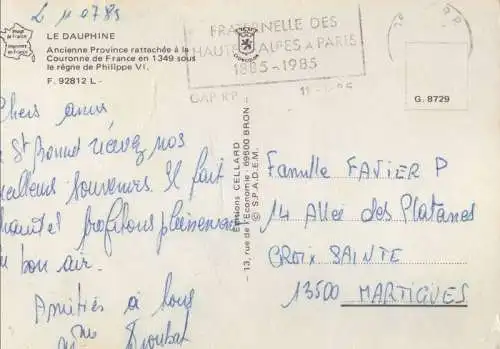 L 11 07 85
LE DAUPHINE
Ancienne Province rattachée à la
Couronne de France en 1349 sous
le règne de Philippe VI.
F. 92812 L -
FRATERNELLE DES
HAUTES ALPES A PARIS
1885-1985
GAP RP
G. 8729
Chers amis
St Bonnet recevez nos
meilleurs souvenirs. Il fait
chaud et profitons pleinement
du bon air.
Amitiés à tous
Mme Droubat
Editions CELLARD
- 13, rue de l'Economie - 69500 BRON -
© S.P.A.D.E.M.
Famille FAVIER P
14 Allée des Platanes
CROIX SAINTE
13500 MARTIGUES